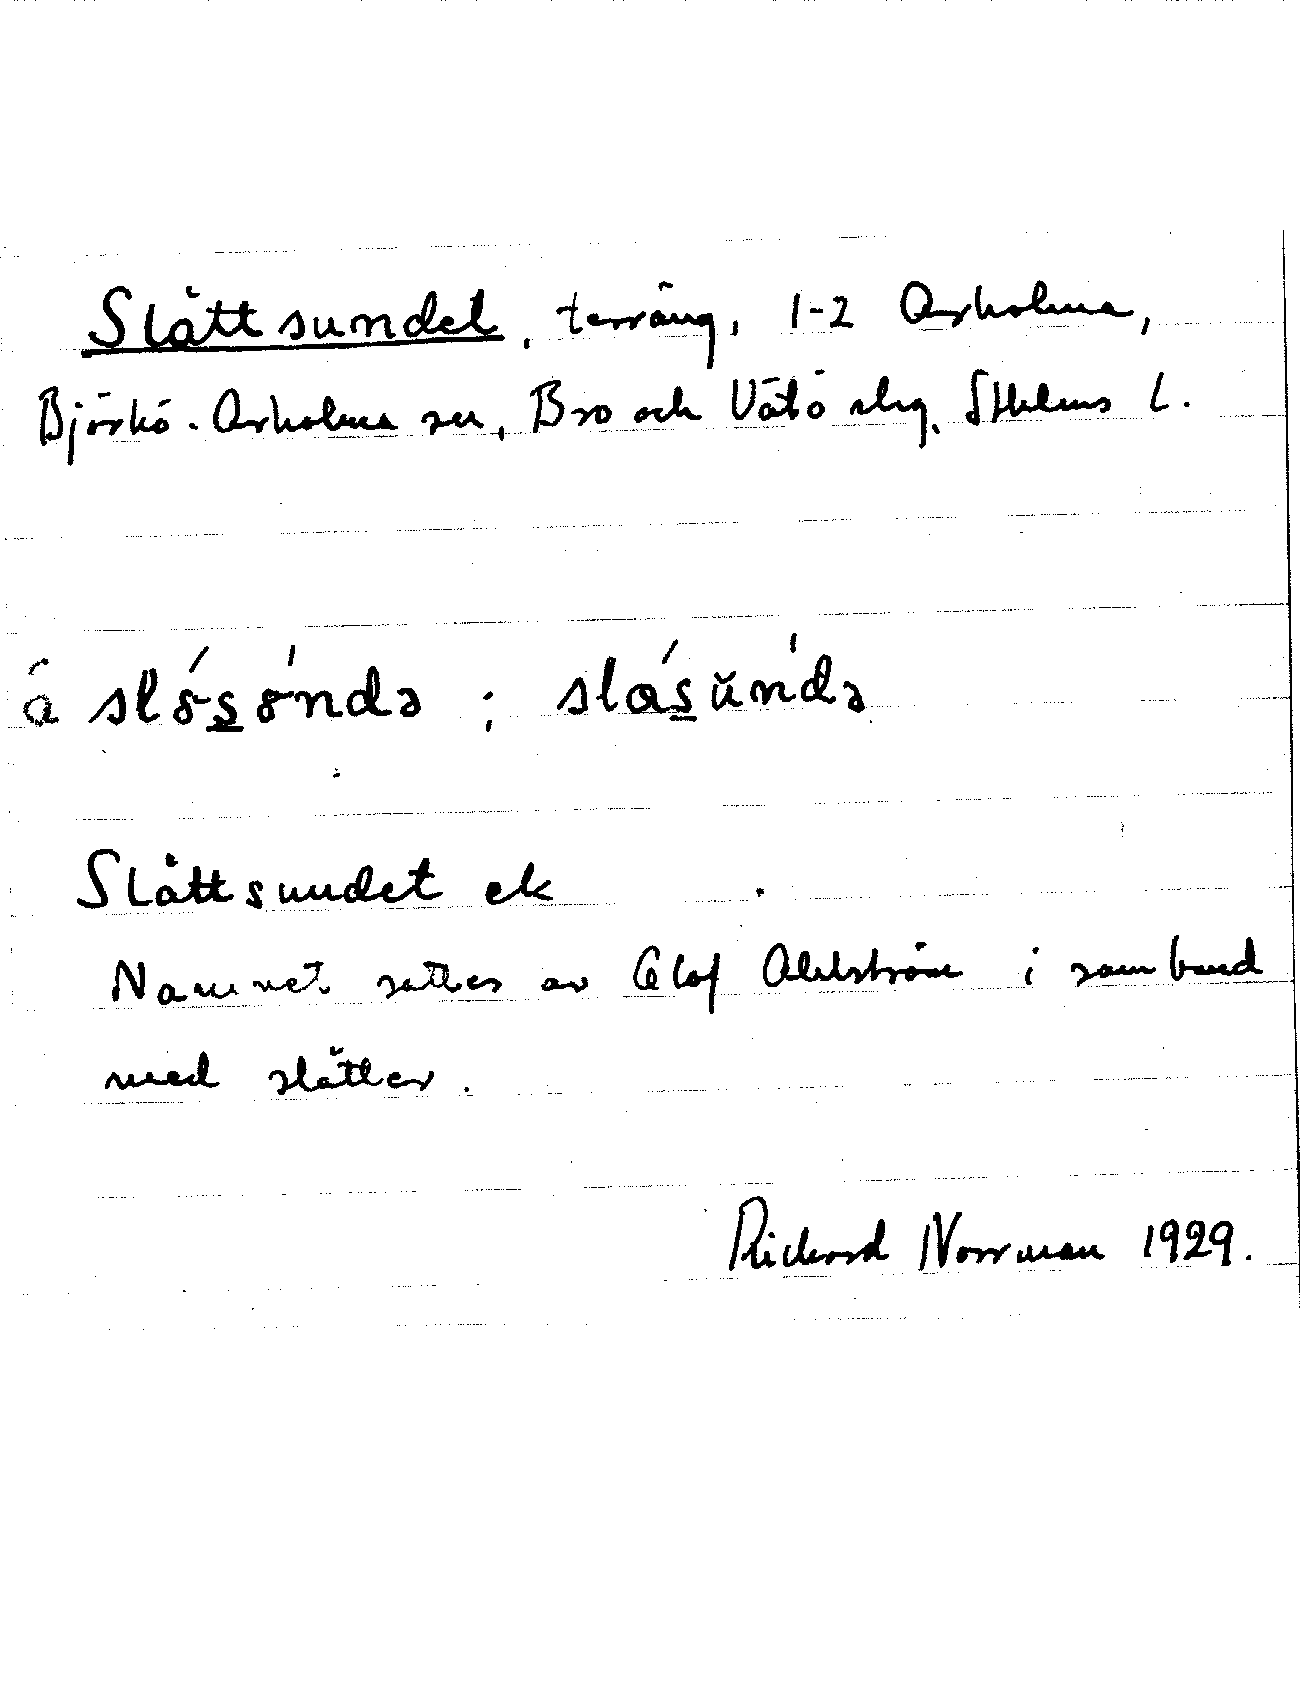 Slåttsundet, terräng, 1-2 Arholma,
Björkö-Arholma sn, Bro och Vätö slg, Sthlms l.
å slósóndə ; slásŭ́ndə
Slåttsundet ek
Namnet sattes av Olof Ahlström i samband
med slåtter.
Rickard Norrman 1929.